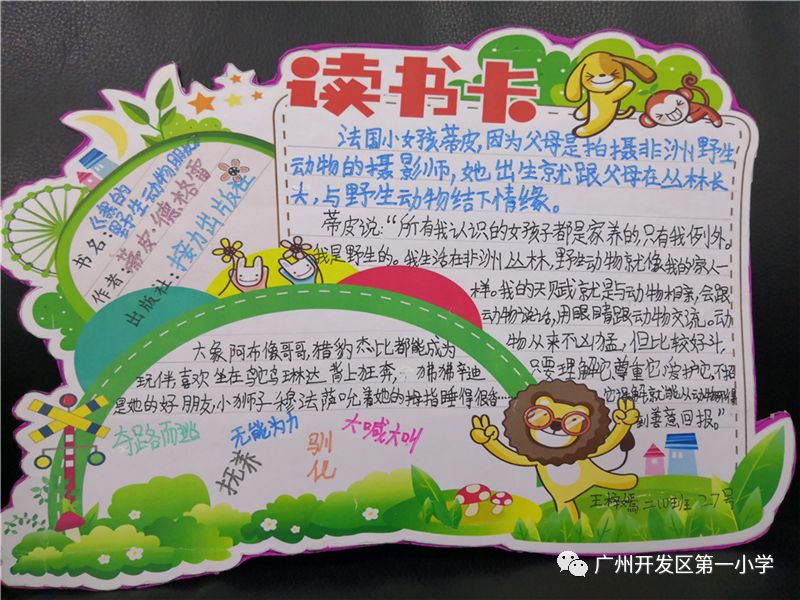 读书卡
书名:《我的野生动物朋友》
作者:蒂皮·德格雷
出版社:接力出版社
法国小女孩蒂皮,因为父母是拍摄非洲野生
动物的摄影师,她出生就跟父母在丛林长
大,与野生动物结下情缘。
蒂皮说:“所有我认识的女孩子都是家养的,只有我例外。
我是野生的。我生活在非洲丛林,野生动物就像我的家人一
样。我的天赋就是与动物相亲,会跟
动物说话,用眼睛跟动物交流。动
物从来不凶猛,但比较好斗,
只要理解它尊重它爱护它,不招
它误解就能从动物那得
到善意回报。”
大象阿布像哥哥,猎豹杰比都能成为
玩伴,喜欢坐在鸵鸟琳达背上狂奔,狒狒辛迪
是她的好朋友,小狮子穆法萨吮着她的拇指睡得很香……
夺路而逃
无能为力
抚养
驯化
大喊大叫
二(1)班 27号
广州开发区第一小学